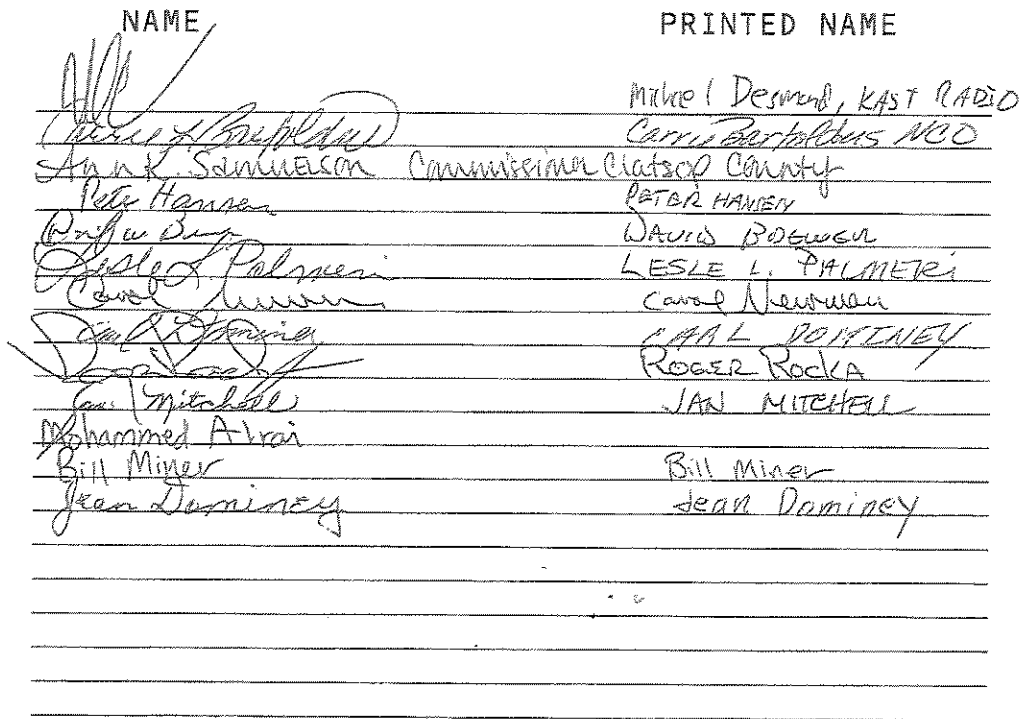 NAME PRINTED NAME
Michael Desmond, KAST RADIO
Carrie Bartoldus NCO
Ann K. Samuelson Commissioner Clatsop County
Peter Hansen PETER HANSEN
DAVID
Lesle L Palmeri LESLE L. PALMERI
Carol Newman Carol Newman
Carl Dominey CARL DOMINEY
ROGER ROCKA
Jan Mitchell JAN MITCHELL
Mohammed Alrai
Bill Miner Bill Miner
Jean Dominey Jean Dominey